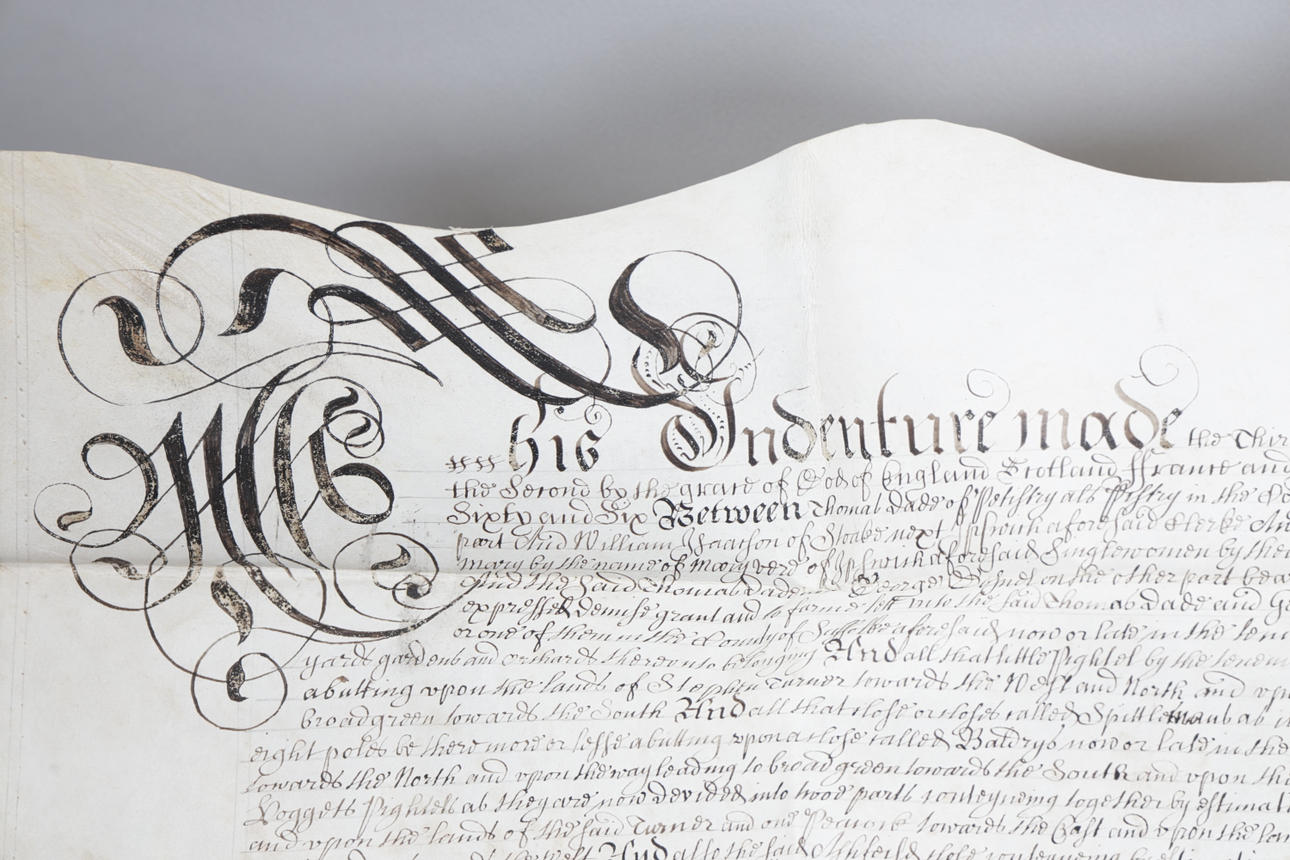 This Indenture made the Thir
the Second by the grace of God of England Scotland ffrance and
Sixty and Six Between Thomas Dade of Pettistry als Pistry in the
part And William Isaacson of Stoake next Ipswich aforesaid Clerke And
Mary by the name of Mary vere of Ipswich aforesaid Singlewomen by their
And the said Thomas Dade George on the other part
expressed demise grant and to farme lett unto the said Thomas Dade and
or one of them in the County of Suffolke aforesaid now or late in the tenu
yards gardens and orchards thereonto belonging And all that little Pightel by the tenem
abutting upon the lands of Stephen Turner towards the West and North and upon
broad green towards the South And all that close or closes called
eight poles be there more or lesse abutting upon a close called Baldrys now or late in the
towards the North and upon the way leading to broad green towards the South and upon the
Noggets Pightells as they are now devided into twoe parts conteyneing together by estimat
and upon the lands of the said Turner and one Peacock towards the East and upon the lan
And allso the said